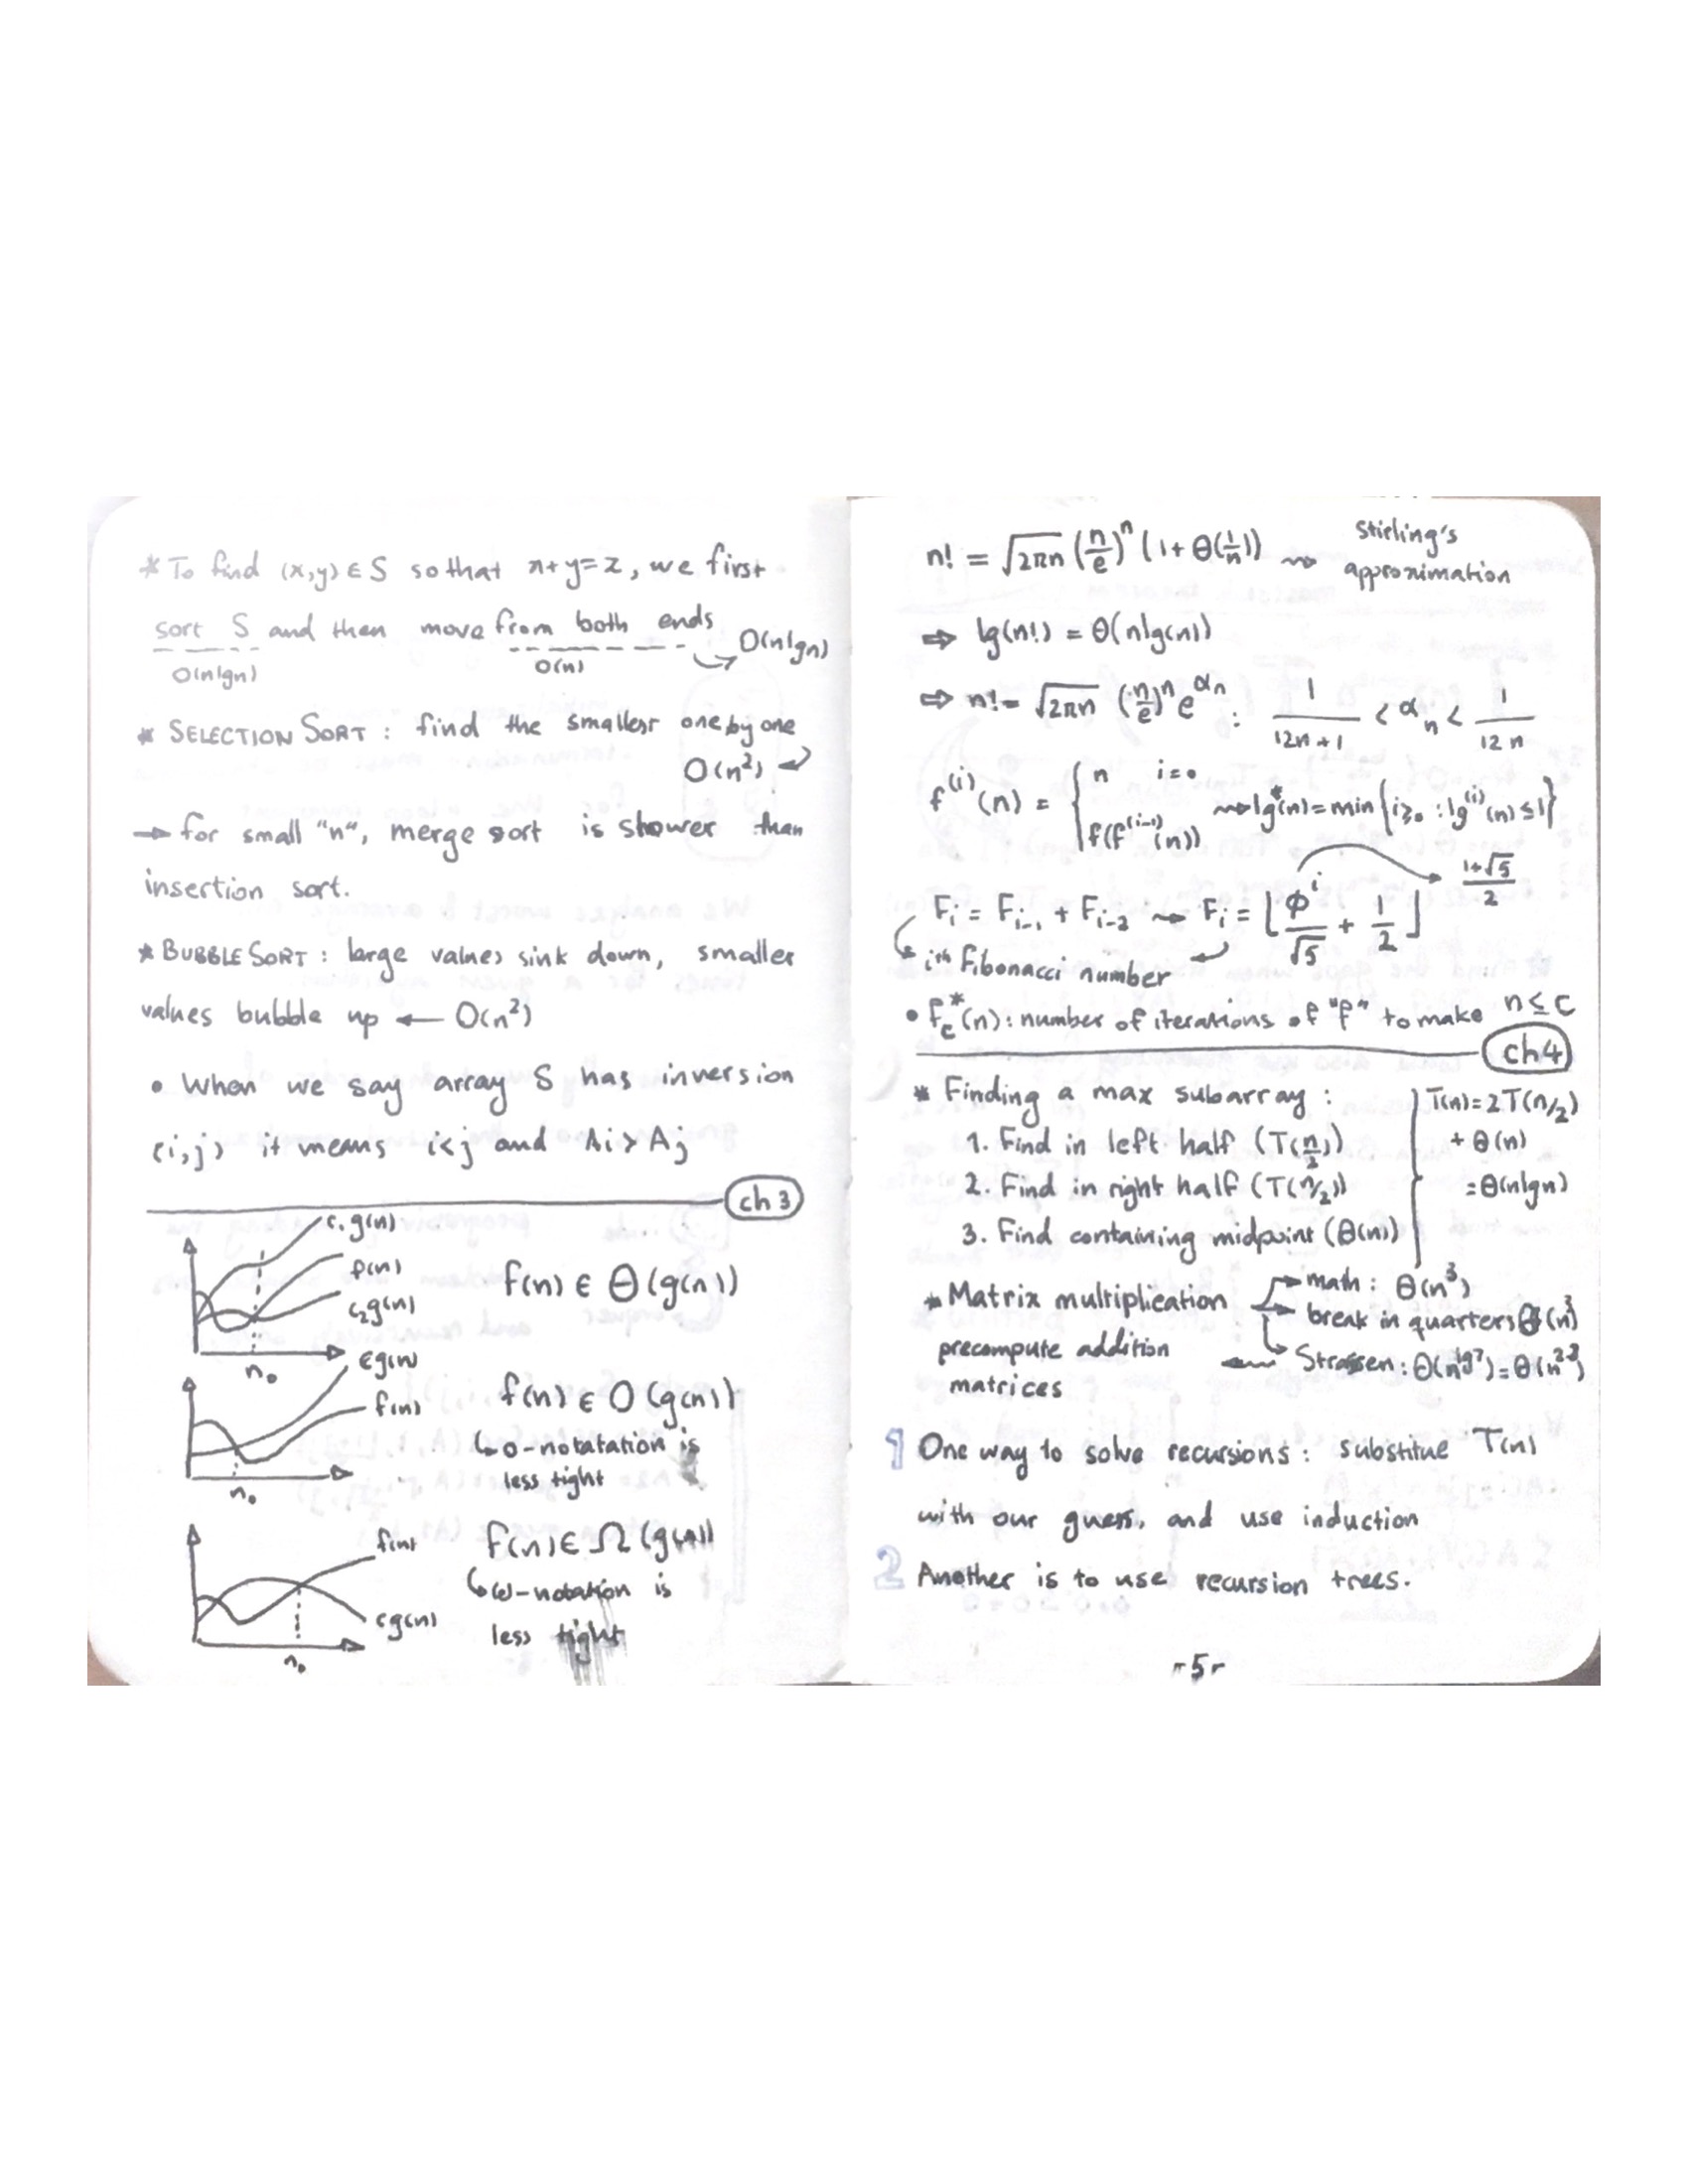 * To find (x,y) ∈ S so that x+y=z, we first
sort S and then move from both ends
O(nlgn) O(n) O(nlgn)
* SELECTION SORT : find the smallest one by one
O(n²)
→ for small "n", merge sort is slower than
insertion sort.
* BUBBLE SORT : large values sink down, smaller
values bubble up ← O(n²)
• When we say array S has inversion
(i,j) it means i<j and Ai > Aj
ch 3
c₁g(n)
f(n)
c₂g(n)
n₀
f(n) ∈ Θ(g(n))
cg(n)
f(n)
n₀
f(n) ∈ O(g(n))
↳ o-notatation is
less tight
f(n)
cg(n)
n₀
f(n) ∈ Ω(g(n))
↳ ω-notation is
less tight
n! = √2πn (n/e)ⁿ (1+ Θ(1/n)) ⇝ Stirling's
approximation
⇒ lg(n!) = Θ(nlg(n))
⇒ n! = √2πn (n/e)ⁿ e^αn : 1/(12n+1) < αn < 1/(12n)
f^(i)(n) = { n i=0
f(f^(i-1)(n)) ⇝ lg*(n) = min{i≥0 : lg^(i)(n) ≤ 1}
Fi = Fi-1 + Fi-2 ⇝ Fi = ⌊φ^i/√5 + 1/2⌋ → (1+√5)/2
ith Fibonacci number
• f*c(n) : number of iterations of "f" to make n ≤ C
ch4
* Finding a max subarray :
1. Find in left half (T(n/2))
2. Find in right half (T(n/2))
3. Find containing midpoint (Θ(n))
T(n) = 2T(n/2)
+ Θ(n)
= Θ(nlgn)
* Matrix multiplication
→ math : Θ(n³)
→ break in quarters Θ(n³)
→ Strassen : Θ(n^lg7) = Θ(n^2.8)
precompute addition
matrices
1 One way to solve recursions : substitue T(n)
with our guess, and use induction
2 Another is to use recursion trees.
-5-